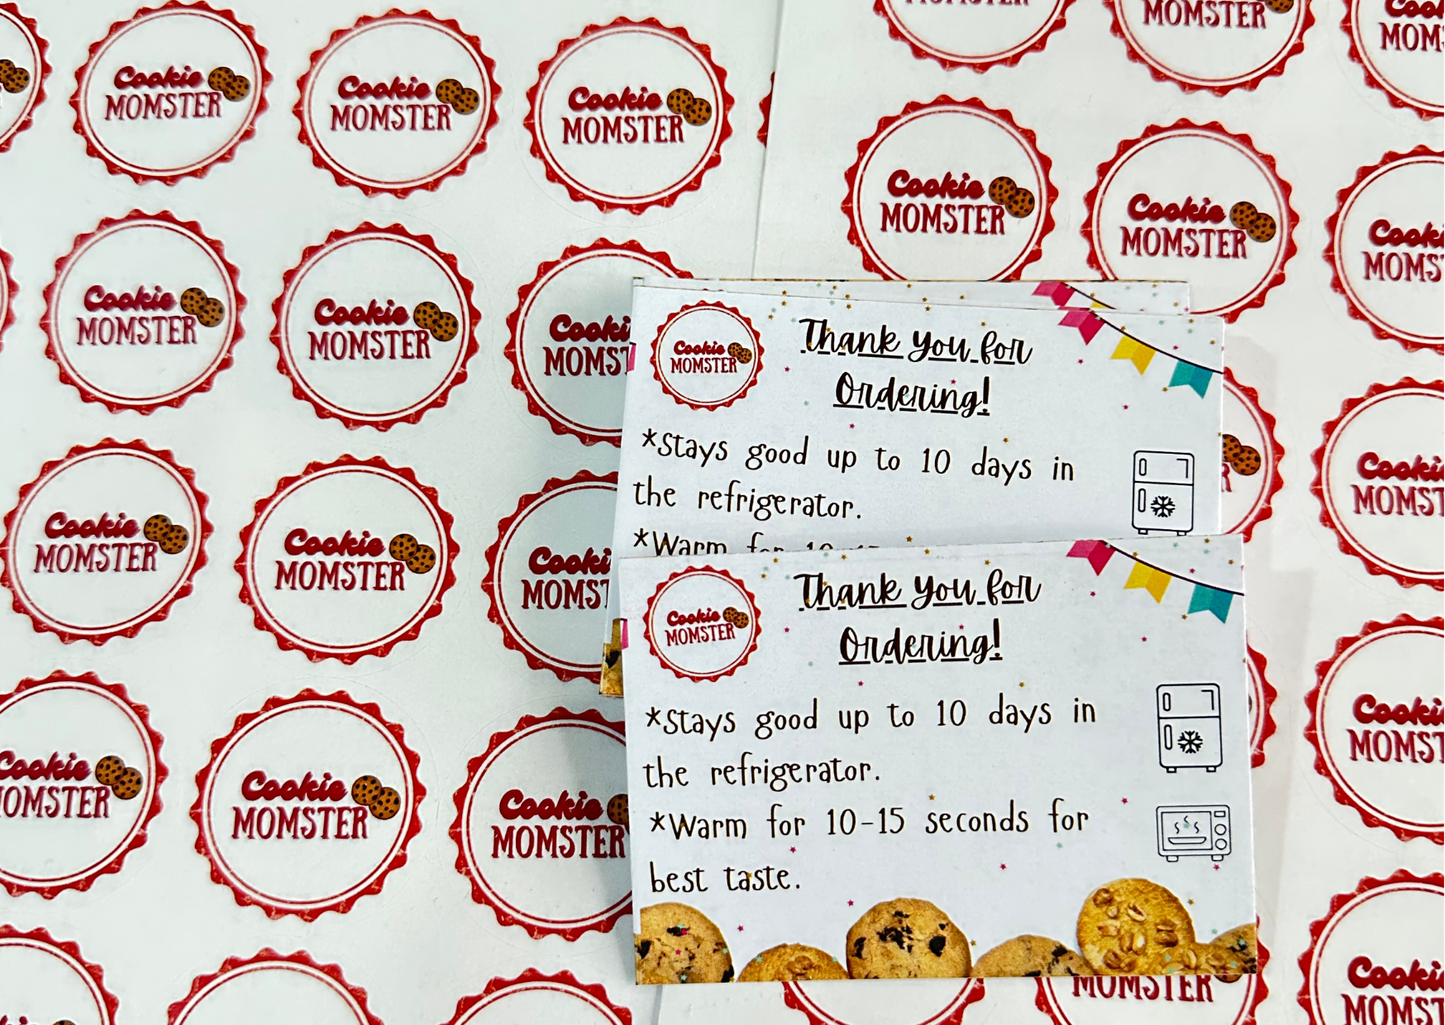 MOMSTER
Cookie
MOMSTER
Cookie
MOM
Cookie
MOMSTER
Cookie
MOMSTER
Cookie
MOMSTER
Cookie
MOMSTER
Cookie
MOMSTER
Cookie
MOMS
Cookie
MOMSTER
Cookie
MOMSTER
Cooki
MOMST
Cookie
MOMSTER
Thank You for
Ordering!
*Stays good up to 10 days in
the refrigerator.
*Warm for 10-15
Cookie
MOMST
Cookie
MOMSTER
Cookie
MOMSTER
Cookie
MOMST
Cookie
MOMSTER
Thank You for
Ordering!
*Stays good up to 10 days in
the refrigerator.
*Warm for 10-15 seconds for
best taste.
Cookie
MOMST
Cookie
MOMSTER
Cookie
MOMSTER
Cookie
MOMSTER
MOMSTER
Cookie
MOMST